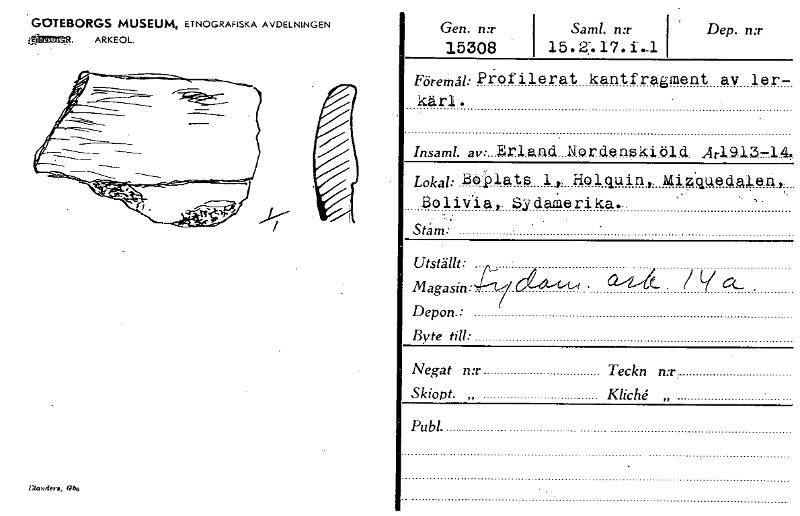 GÖTEBORGS MUSEUM, ETNOGRAFISKA AVDELNINGEN
ARKEOL.
1/1
Elanders, Gbg
Gen. n:r Saml. n:r Dep. n:r
15308 15.2.17.1.1
Föremål: Profilerat kantfragment av ler-
kärl.
Insaml. av: Erland Nordenskiöld År 1913-14.
Lokal: Boplats 1, Holquin, Mizquedalen,
Bolivia, Sydamerika.
Stam:
Utställt:
Magasin: Sydam. ark. 14 a.
Depon.:
Byte till:
Negat n:r Teckn n:r
Skiopt. „ Kliché „
Publ.